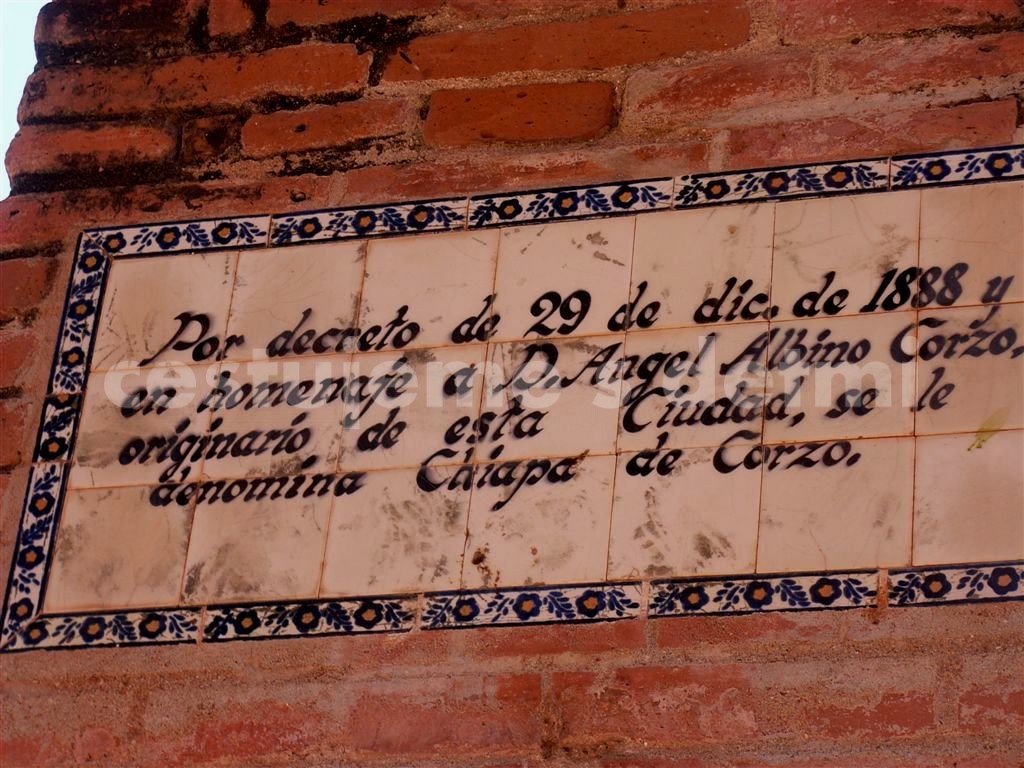 Por decreto de 29 de dic. de 1888 y
en homenaje a D. Angel Albino Corzo,
originario de esta Ciudad, se le
denomina Chiapa de Corzo.